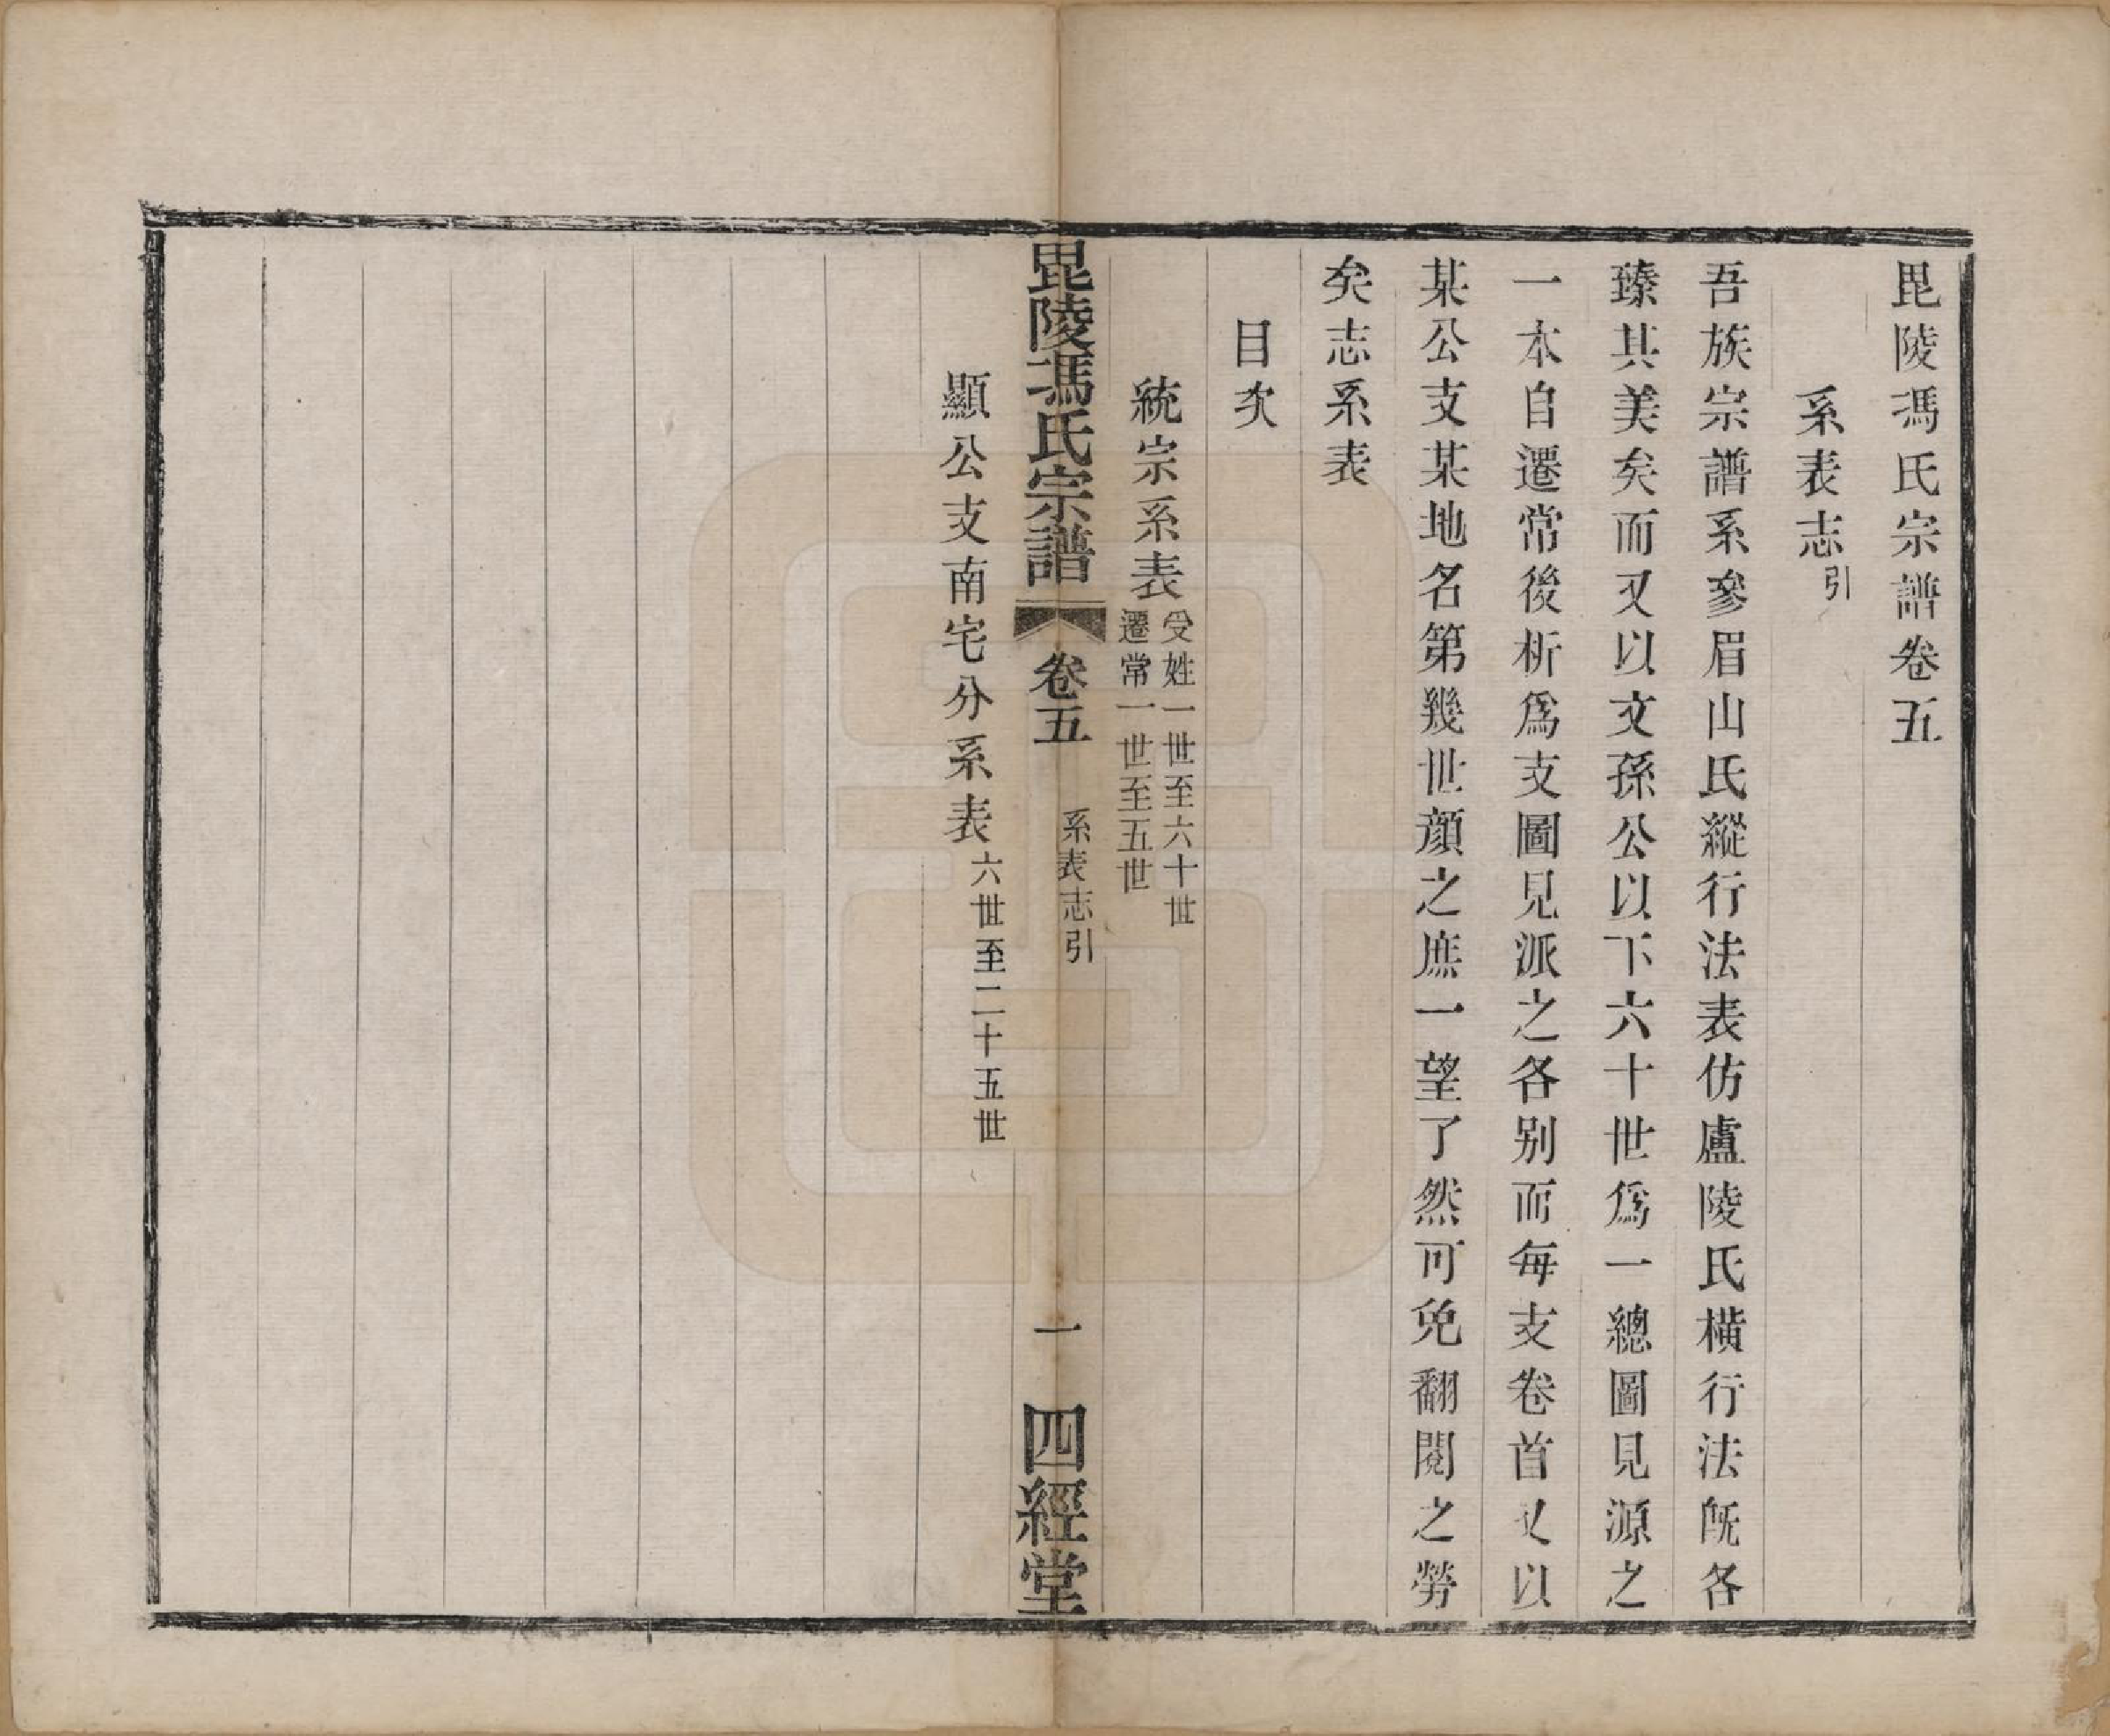 毘陵馮氏宗譜卷五
系表志引
吾族宗譜系參眉山氏縱行法表仿盧陵氏橫行法旣各
臻其美矣而又以文孫公以下六十世爲一總圖見源之
一本自遷常後析爲支圖見派之各别而每支卷首又以
某公支某地名第幾世顏之庶一望了然可免翻閱之勞
矣志系表
目次
統宗系表受姓一世至六十世
遷常一世至五世
毘陵馮氏宗譜 卷五 系表志引 一 四經堂
顯公支南宅分系表六世至二十五世